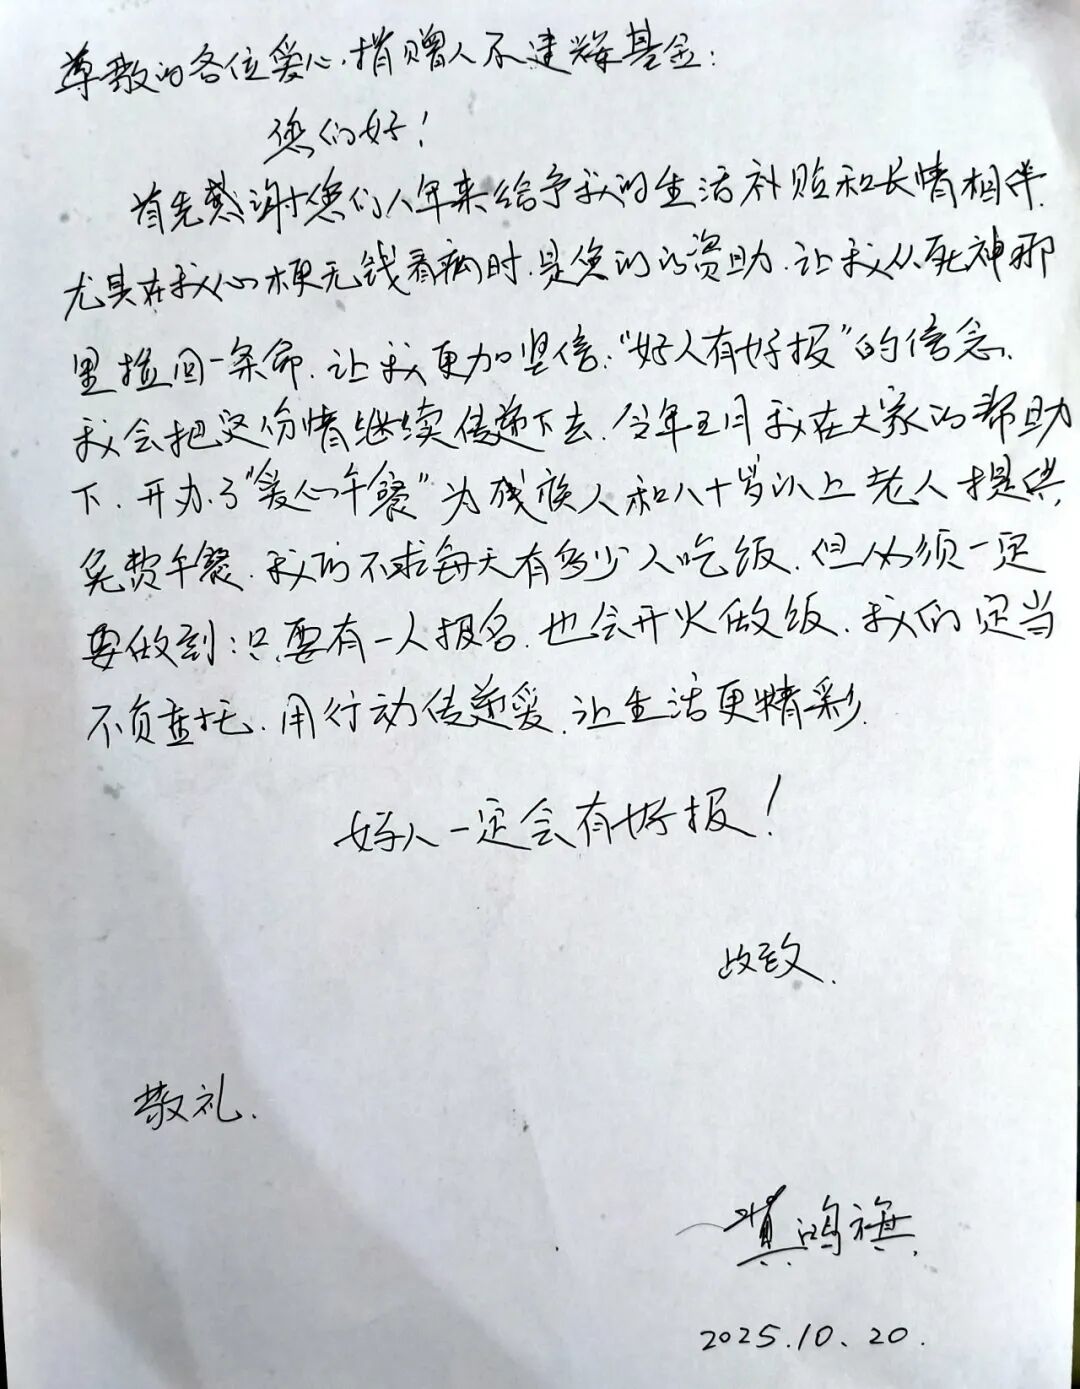 尊敬的各位爱心捐赠人禾建辉基金:
您们好!
首先感谢您们八年来给予我的生活补贴和长情相伴.
尤其在我心梗无钱看病时.是您们的资助.让我从死神那
里捡回一条命.让我更加坚信:“好人有好报”的信念.
我会把这份情继续传递下去.今年五月我在大家的帮助
下.开办了“爱心午餐”为残疾人和八十岁以上老人提供
免费午餐.我们不求每天有多少人吃饭.但必须一定
要做到:只要有一人报名.也会开火做饭.我们定当
不负重托.用行动传递爱.让生活更精彩.
好人一定会有好报!
此致.
敬礼.
黄鸿旗
2025.10.20.